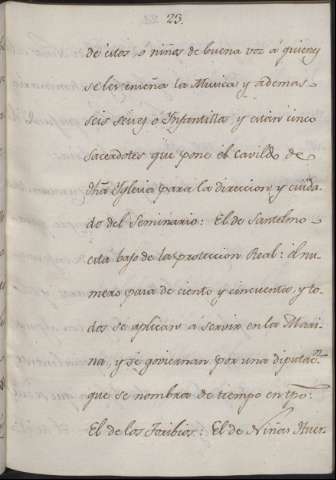 23.
de estos, ó niños de buena voz á quienes
se les enseña la Musica y ademas
seis seises ó Infantillos, y están cinco
sacerdotes que pone el cavildo de
dha Yglesia para la direccion y cuida-
do del Seminario: El de Santelmo
esta bajo de la proteccion Real: el nu-
mero pasa de ciento y cincuenta, y to-
dos se aplican á servir en la Mari-
na, y se goviernan por una diputacn.
que se nombra de tiempo en tpo:
El de los Toribios: El de Niñas Huer-